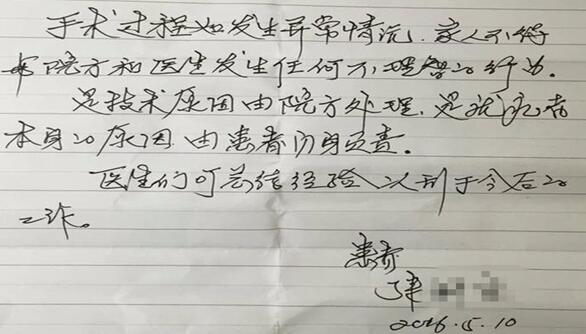 手术过程如发生异常情况,家人不得
与院方和医生发生任何不理智的行为。
是技术原因由院方处理,是我患者
本身的原因由患者自身负责。
医生们可总结经验以利于今后的
工作。
患者
2016.5.10